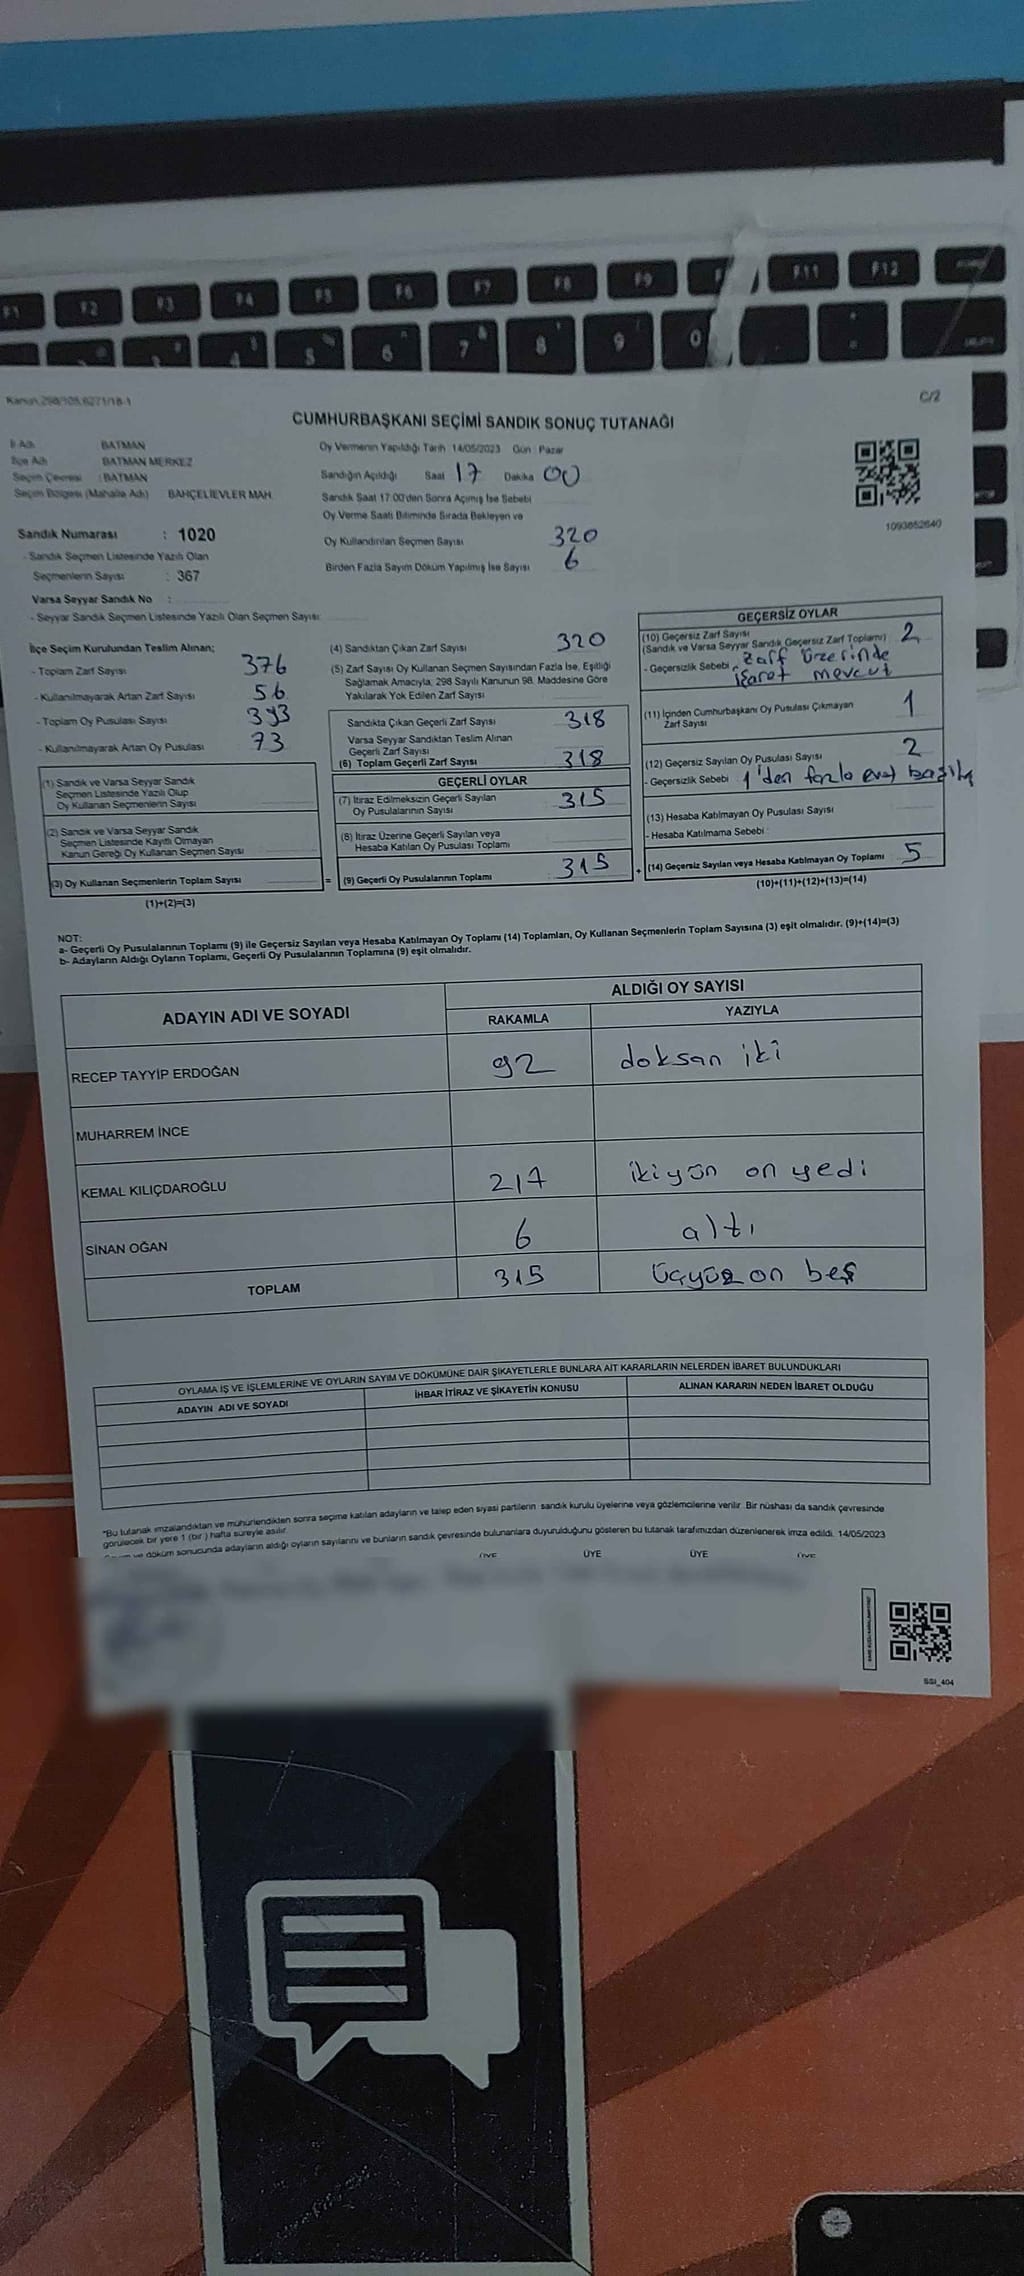 F1 F2 F3 F4 F5 F6 F7 F8 F9 F F11 F12
4 5 6 7 8 9 0
Kanun,298/105,6271/18-1
C/2
CUMHURBAŞKANI SEÇİMİ SANDIK SONUÇ TUTANAĞI
İl Adı BATMAN
İlçe Adı BATMAN MERKEZ
Seçim Çevresi : BATMAN
Seçim Bölgesi (Mahalle Adı) BAHÇELİEVLER MAH.
Sandık Numarası : 1020
- Sandık Seçmen Listesinde Yazılı Olan
Seçmenlerin Sayısı : 367
Varsa Seyyar Sandık No :
- Seyyar Sandık Seçmen Listesinde Yazılı Olan Seçmen Sayısı
Oy Vermenin Yapıldığı Tarih 14/05/2023 Gün : Pazar
Sandığın Açıldığı Saat 17 Dakika 00
Sandık Saat 17.00'den Sonra Açımış İse Sebebi
Oy Verme Saati Bitiminde Sırada Bekleyen ve
Oy Kullandırılan Seçmen Sayısı 320
Birden Fazla Sayım Döküm Yapılmış İse Sayısı 6
1093652640
İlçe Seçim Kurulundan Teslim Alınan;
- Toplam Zarf Sayısı 376
- Kullanılmayarak Artan Zarf Sayısı 56
- Toplam Oy Pusulası Sayısı 393
- Kullanılmayarak Artan Oy Pusulası 73
(1) Sandık ve Varsa Seyyar Sandık
Seçmen Listesinde Yazılı Olup
Oy Kullanan Seçmenlerin Sayısı
(2) Sandık ve Varsa Seyyar Sandık
Seçmen Listesinde Kayıtlı Olmayan
Kanun Gereği Oy Kullanan Seçmen Sayısı
(3) Oy Kullanan Seçmenlerin Toplam Sayısı
(1)+(2)=(3)
=
(4) Sandıktan Çıkan Zarf Sayısı 320
(5) Zarf Sayısı Oy Kullanan Seçmen Sayısından Fazla İse, Eşitliği
Sağlamak Amacıyla, 298 Sayılı Kanunun 98. Maddesine Göre
Yakılarak Yok Edilen Zarf Sayısı
Sandıkta Çıkan Geçerli Zarf Sayısı 318
Varsa Seyyar Sandıktan Teslim Alınan
Geçerli Zarf Sayısı
(6) Toplam Geçerli Zarf Sayısı 318
GEÇERLİ OYLAR
(7) İtiraz Edilmeksizin Geçerli Sayılan
Oy Pusulalarının Sayısı 315
(8) İtiraz Üzerine Geçerli Sayılan veya
Hesaba Katılan Oy Pusulası Toplamı
(9) Geçerli Oy Pusulalarının Toplamı 315
+
GEÇERSİZ OYLAR
(10) Geçersiz Zarf Sayısı
(Sandık ve Varsa Seyyar Sandık Geçersiz Zarf Toplamı) 2
- Geçersizlik Sebebi : Zarf üzerinde
işaret mevcut
(11) İçinden Cumhurbaşkanı Oy Pusulası Çıkmayan
Zarf Sayısı 1
(12) Geçersiz Sayılan Oy Pusulası Sayısı 2
- Geçersizlik Sebebi 1'den fazla evet
(13) Hesaba Katılmayan Oy Pusulası Sayısı
- Hesaba Katılmama Sebebi :
(14) Geçersiz Sayılan veya Hesaba Katılmayan Oy Toplamı 5
(10)+(11)+(12)+(13)=(14)
NOT:
a- Geçerli Oy Pusulalarının Toplamı (9) ile Geçersiz Sayılan veya Hesaba Katılmayan Oy Toplamı (14) Toplamları, Oy Kullanan Seçmenlerin Toplam Sayısına (3) eşit olmalıdır. (9)+(14)=(3)
b- Adayların Aldığı Oyların Toplamı, Geçerli Oy Pusulalarının Toplamına (9) eşit olmalıdır.
ADAYIN ADI VE SOYADI ALDIĞI OY SAYISI
RAKAMLA YAZIYLA
RECEP TAYYİP ERDOĞAN 92 doksan iki
MUHARREM İNCE
KEMAL KILIÇDAROĞLU 217 ikiyün on yedi
SİNAN OĞAN 6 altı
TOPLAM 315 üçyüz on beş
OYLAMA İŞ VE İŞLEMLERİNE VE OYLARIN SAYIM VE DÖKÜMÜNE DAİR ŞİKAYETLERLE BUNLARA AİT KARARLARIN NELERDEN İBARET BULUNDUKLARI
ADAYIN ADI VE SOYADI İHBAR İTİRAZ VE ŞİKAYETİN KONUSU ALINAN KARARIN NEDEN İBARET OLDUĞU
*Bu tutanak imzalandıktan ve mühürlendikten sonra seçime katılan adayların ve talep eden siyasi partilerin sandık kurulu üyelerine veya gözlemcilerine verilir. Bir nüshası da sandık çevresinde
görülecek bir yere 1 (bir ) hafta süreyle asılır.
ve döküm sonucunda adayların aldığı oyların sayılarını ve bunların sandık çevresinde bulunanlara duyurulduğunu gösteren bu tutanak tarafımızdan düzenlenerek imza edildi. 14/05/2023
ÜYE ÜYE ÜYE ÜYE
SSI_404